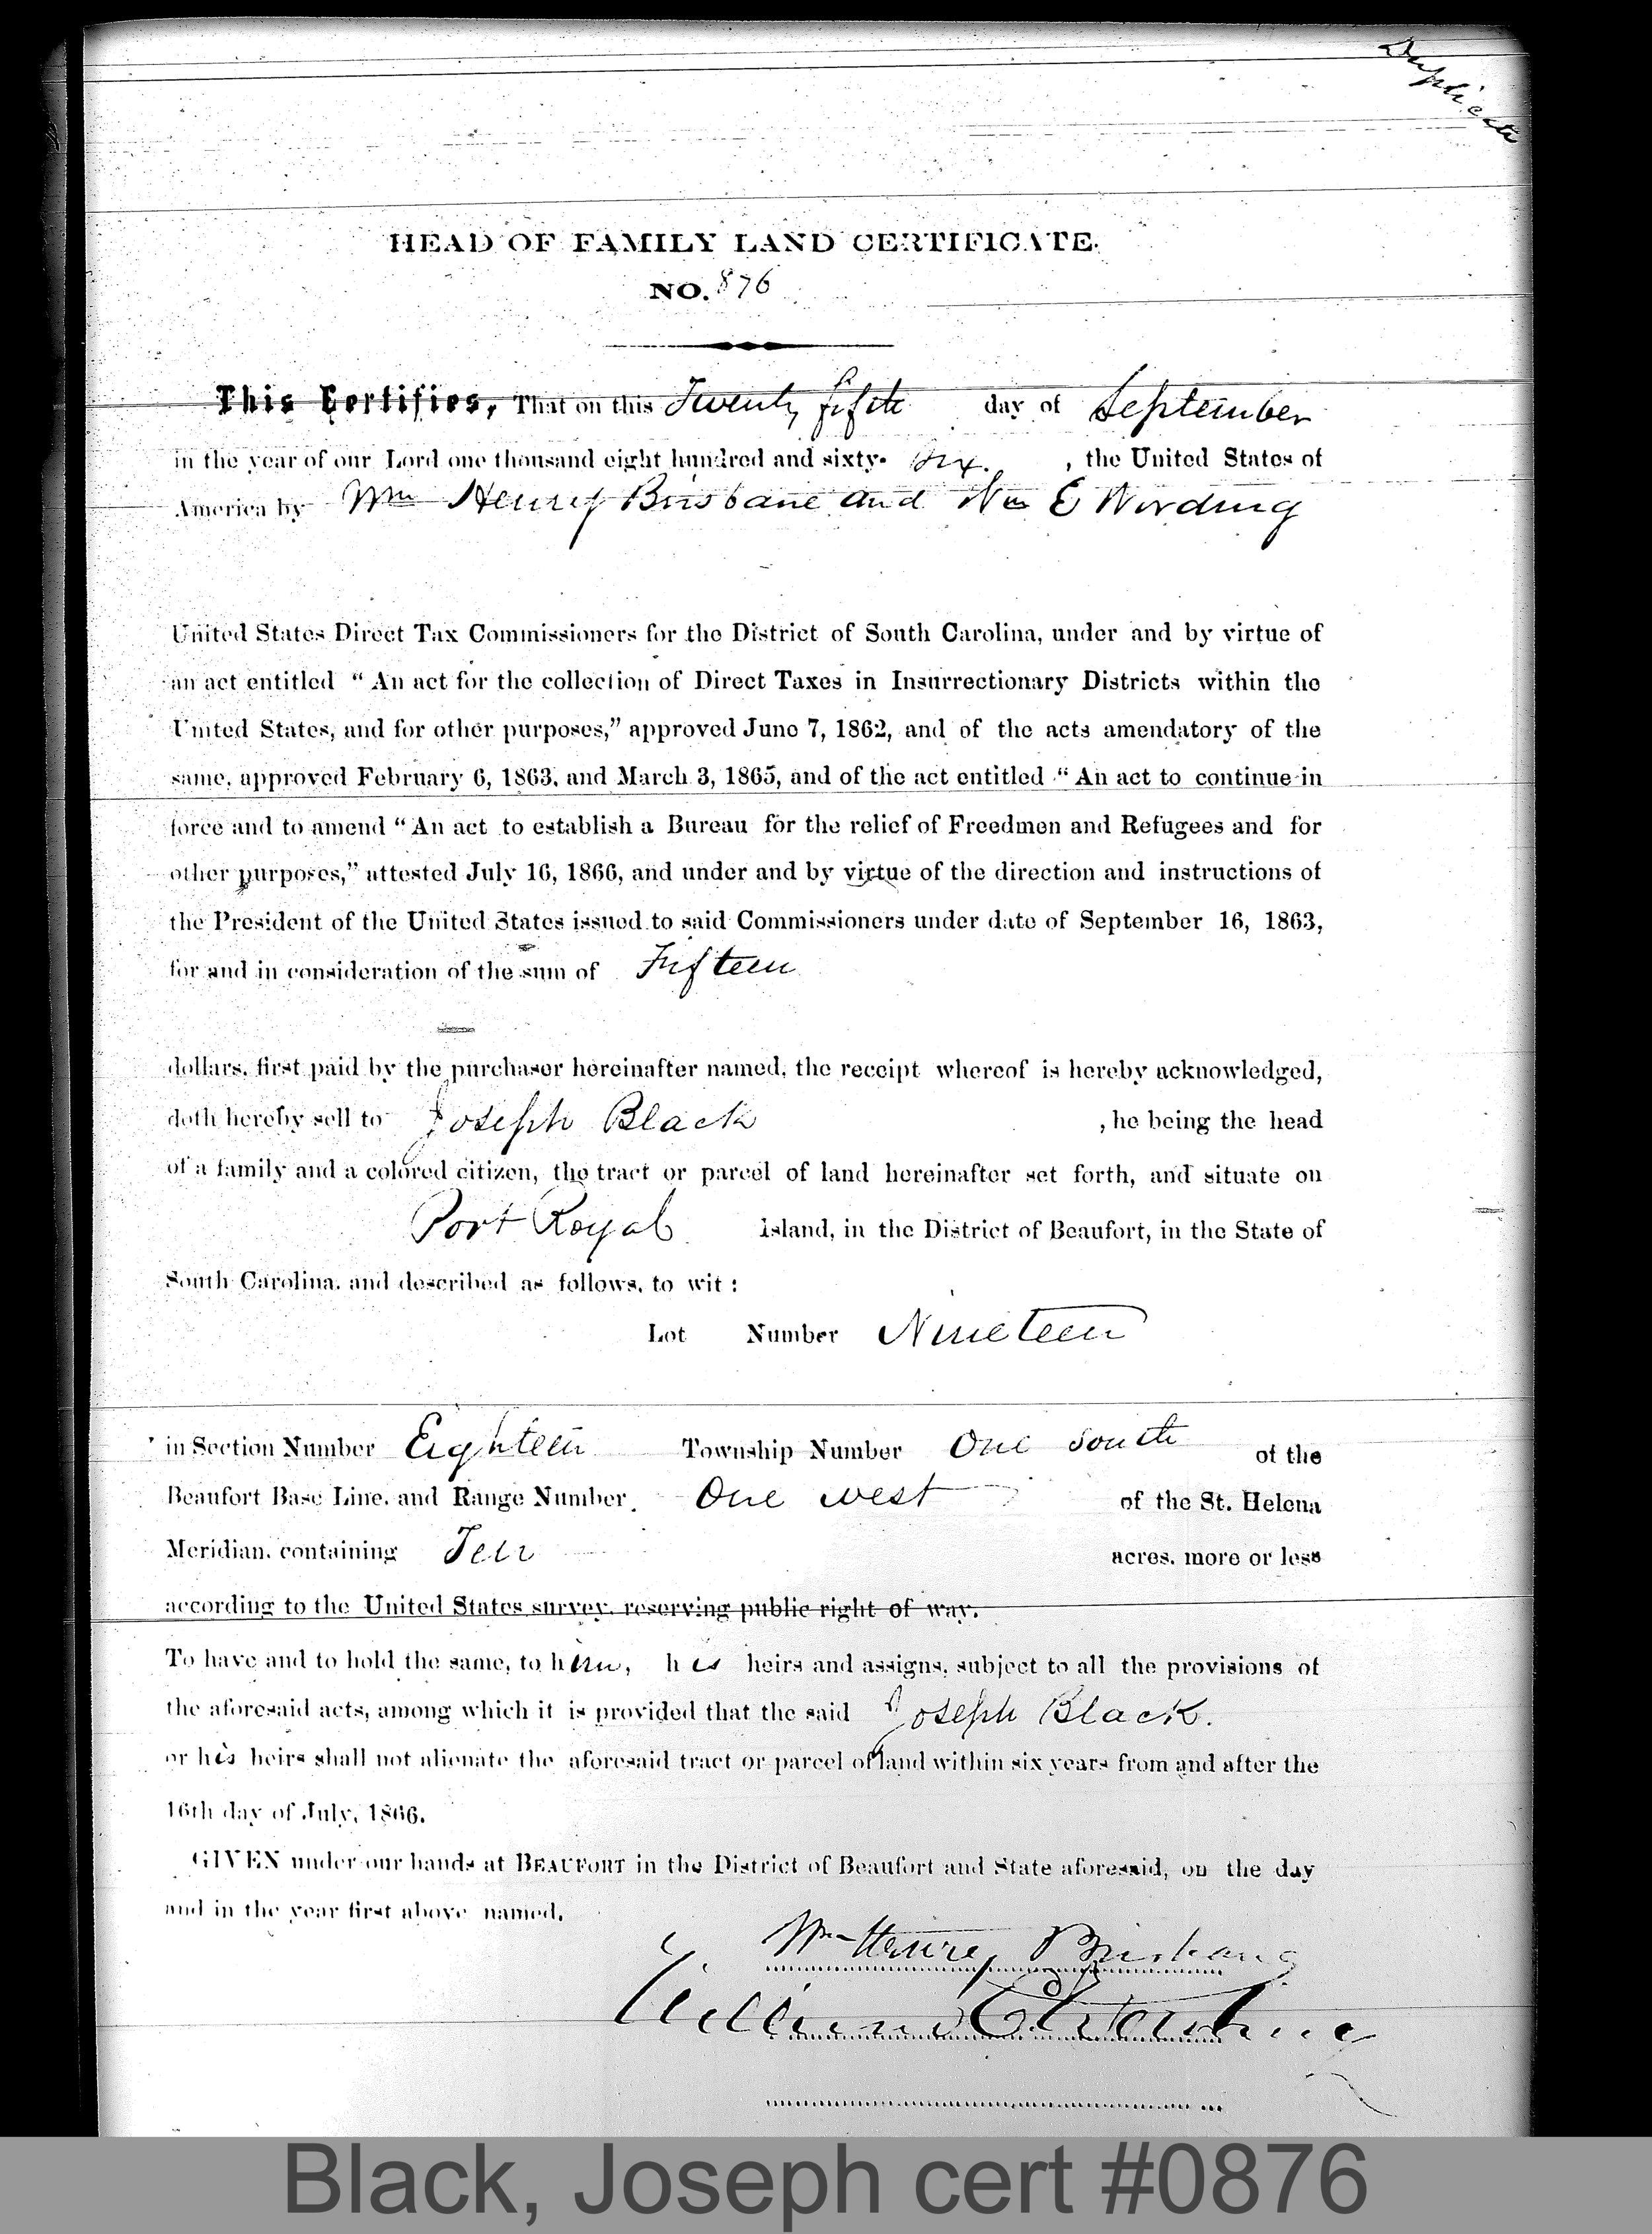 Duplicate
HEAD OF FAMILY LAND CERTIFICATE.
NO. 876
This Certifies, That on this Twenty fifth day of September
in the year of our Lord one thousand eight hundred and sixty- six. , the United States of
America by Wm Henry Brisbane and Wm E Wording
United States Direct Tax Commissioners for the District of South Carolina, under and by virtue of
an act entitled “ An act for the collection of Direct Taxes in Insurrectionary Districts within the
United States, and for other purposes,” approved June 7, 1862, and of the acts amendatory of the
same, approved February 6, 1863, and March 3, 1865, and of the act entitled “ An act to continue in
force and to amend “ An act to establish a Bureau for the relief of Freedmen and Refugees and for
other purposes,” attested July 16, 1866, and under and by virtue of the direction and instructions of
the President of the United States issued to said Commissioners under date of September 16, 1863,
for and in consideration of the sum of Fifteen
dollars, first paid by the purchaser hereinafter named, the receipt whereof is hereby acknowledged,
doth hereby sell to Joseph Black , he being the head
of a family and a colored citizen, the tract or parcel of land hereinafter set forth, and situate on
Port Royal Island, in the District of Beaufort, in the State of
South Carolina, and described as follows, to wit :
Lot Number Nineteen
in Section Number Eighteen Township Number One south of the
Beaufort Base Line, and Range Number One west of the St. Helena
Meridian, containing Ten acres, more or less
according to the United States survey, reserving public right of way.
To have and to hold the same, to him, his heirs and assigns, subject to all the provisions of
the aforesaid acts, among which it is provided that the said Joseph Black.
or his heirs shall not alienate the aforesaid tract or parcel of land within six years from and after the
16th day of July, 1866.
GIVEN under our hands at BEAUFORT in the District of Beaufort and State aforesaid, on the day
and in the year first above named.
Wm Henry Brisbane
William E Wording
Black, Joseph cert #0876